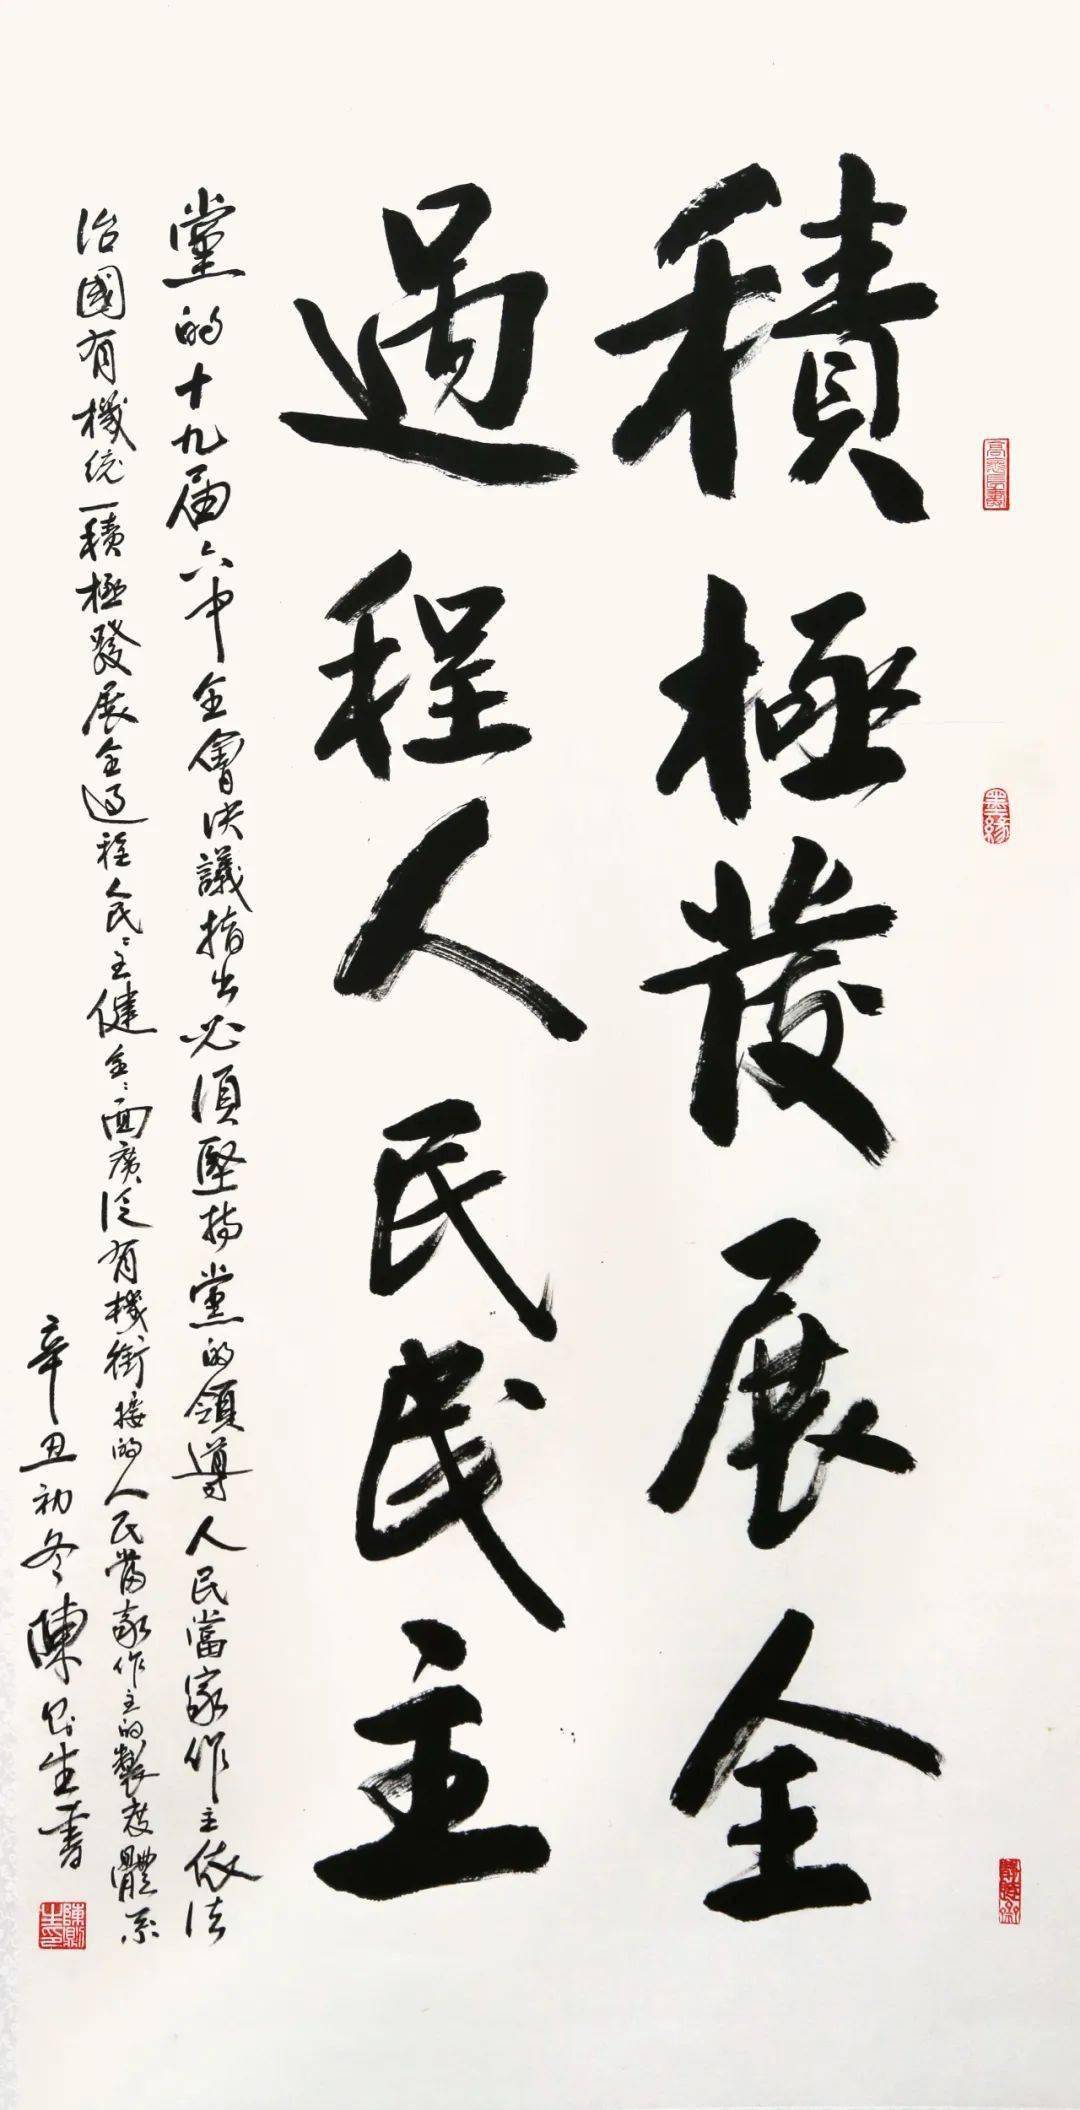 墨緣
積極發展全
過程人民民主
黨的十九届六中全會決議指出必須堅持黨的領導人民當家作主依法
治國有機統一積極發展全過程人民〻主健全〻面廣泛有機銜接的人民當家作主的製度體系
辛丑初冬陳則生書
陳則生印